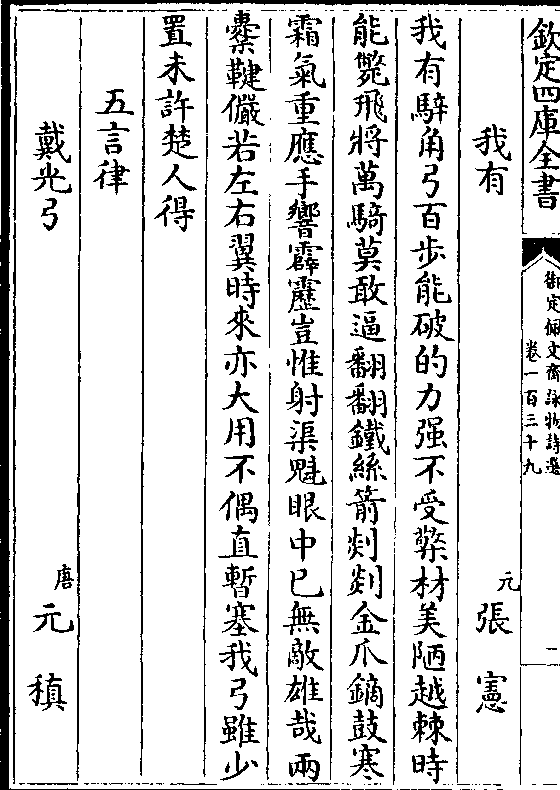 欽定四庫全書
御定佩文齋詠物詩選
卷一百三十九
二
我有
元
張憲
我有騂角弓百步能破的力强不受檠材美陋越棘時
能斃飛將萬騎莫敢逼翻翻鐵絲箭剡剡金爪鏑鼓寒
霜氣重應手響霹靂豈惟射渠魁眼中已無敵雄哉兩
櫜鞬儼若左右翼時來亦大用不偶直暫塞我弓雖少
置未許楚人得
五言律
戴光弓
唐
元稹